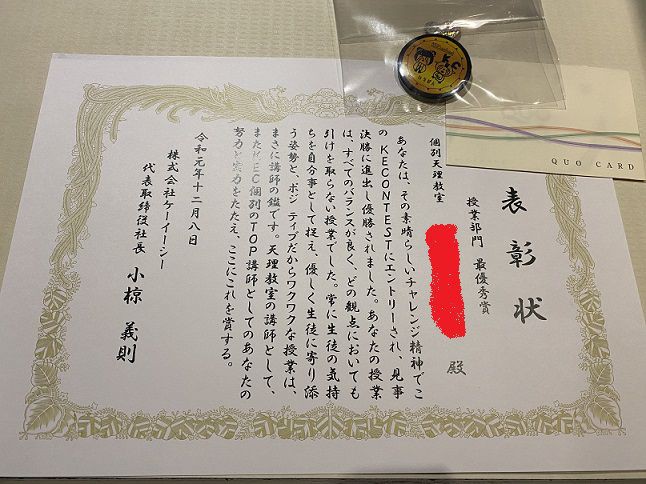 表彰状
授業部門 最優秀賞
個別天理教室
殿
あなたは、その素晴らしいチャレンジ精神でこ
のKECONTESTにエントリーされ、見事
決勝に進出し優勝されました。あなたの授業
は、すべてのバランスが良く、どの観点においても
引けを取らない授業でした。常に生徒の気持
ちを自分事として捉え、優しく生徒に寄り添
う姿勢と、ポジティブだからワクワクな授業は、
まさに講師の鑑です。天理教室の講師として、
またKEC個別のTOP講師としてのあなたの
努力と実力をたたえ、ここにこれを賞する。
令和元年十二月八日
株式会社ケーイーシー
代表取締役社長 小椋 義則
QUO CARD